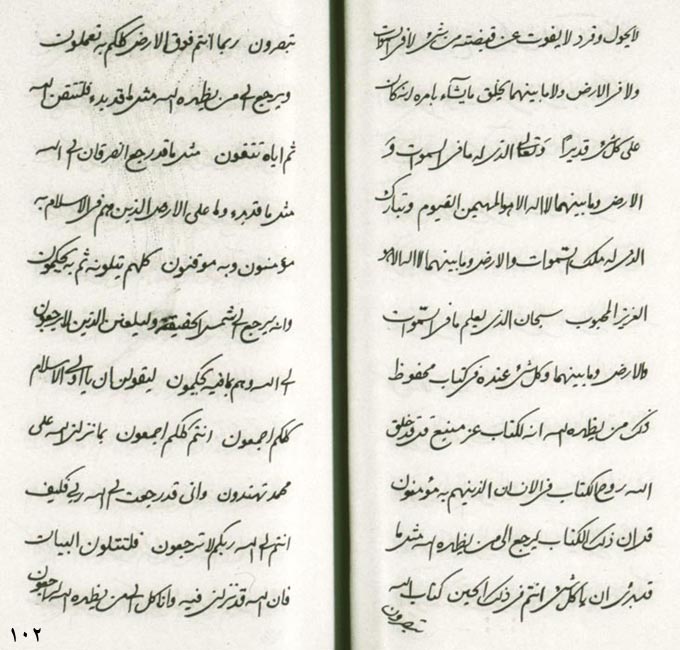 لا يحول وفرد لا يفوت عن قبضته من شئ لا في السموات
ولا في الارض ولا ما بينهما يخلق ما يشآء بامره انه كان
على كل شئ قديرًا وتعالى الذي له ما في السموات و
الارض وما بينهما لا اله الا هو المهيمن القيوم وتبارك
الذي له ملك السموات والارض وما بينهما لا اله الا هو
العزيز المحبوب سبحان الذي يعلم ما في السموات
والارض وما بينهما وكل شئ عنده في كتاب محفوظ
من يظهره الله انه لكتاب عز منيع قد خلق
الله روح الكتاب في الانسان الذينهم به مؤمنون
قل ان ذلك الكتاب ليرجع الى من يظهره الله مثل ما
قد بدئ ان يا كل شئ انتم في ذلك الحين كتاب الله
تبصرون
تبصرون ربما انتم فوق الارض كلكم به تعملون
ويرجع الى من يظهره الله مثل ما قد بدء فلتتقن الله
ثم اياه تتقون مثل ما قد رجع الفرقان الى الله
مثل ما قد بدء ولما على الارض الذين هم في الاسلام به
مؤمنون وبه موقنون كلهم يتلونه ثم به يحكمون
وانه يرجع الى شمس الحقيقة وليلعنن الذين لا يرجعون
الى الله وهم بما فيه يحكمون ليقولن ان يا اولى الاسلام
كلكم اجمعون انتم كلكم اجمعون بما نزل الله على
محمد تهتدون وانى قد رجعت الى الله ربي فكيف
انتم الى الله ربكم لا ترجعون فلتتلون البيات
فان الله قد نزلني فيه وانا كل الى من يظهره الله راجعون
١٠٢